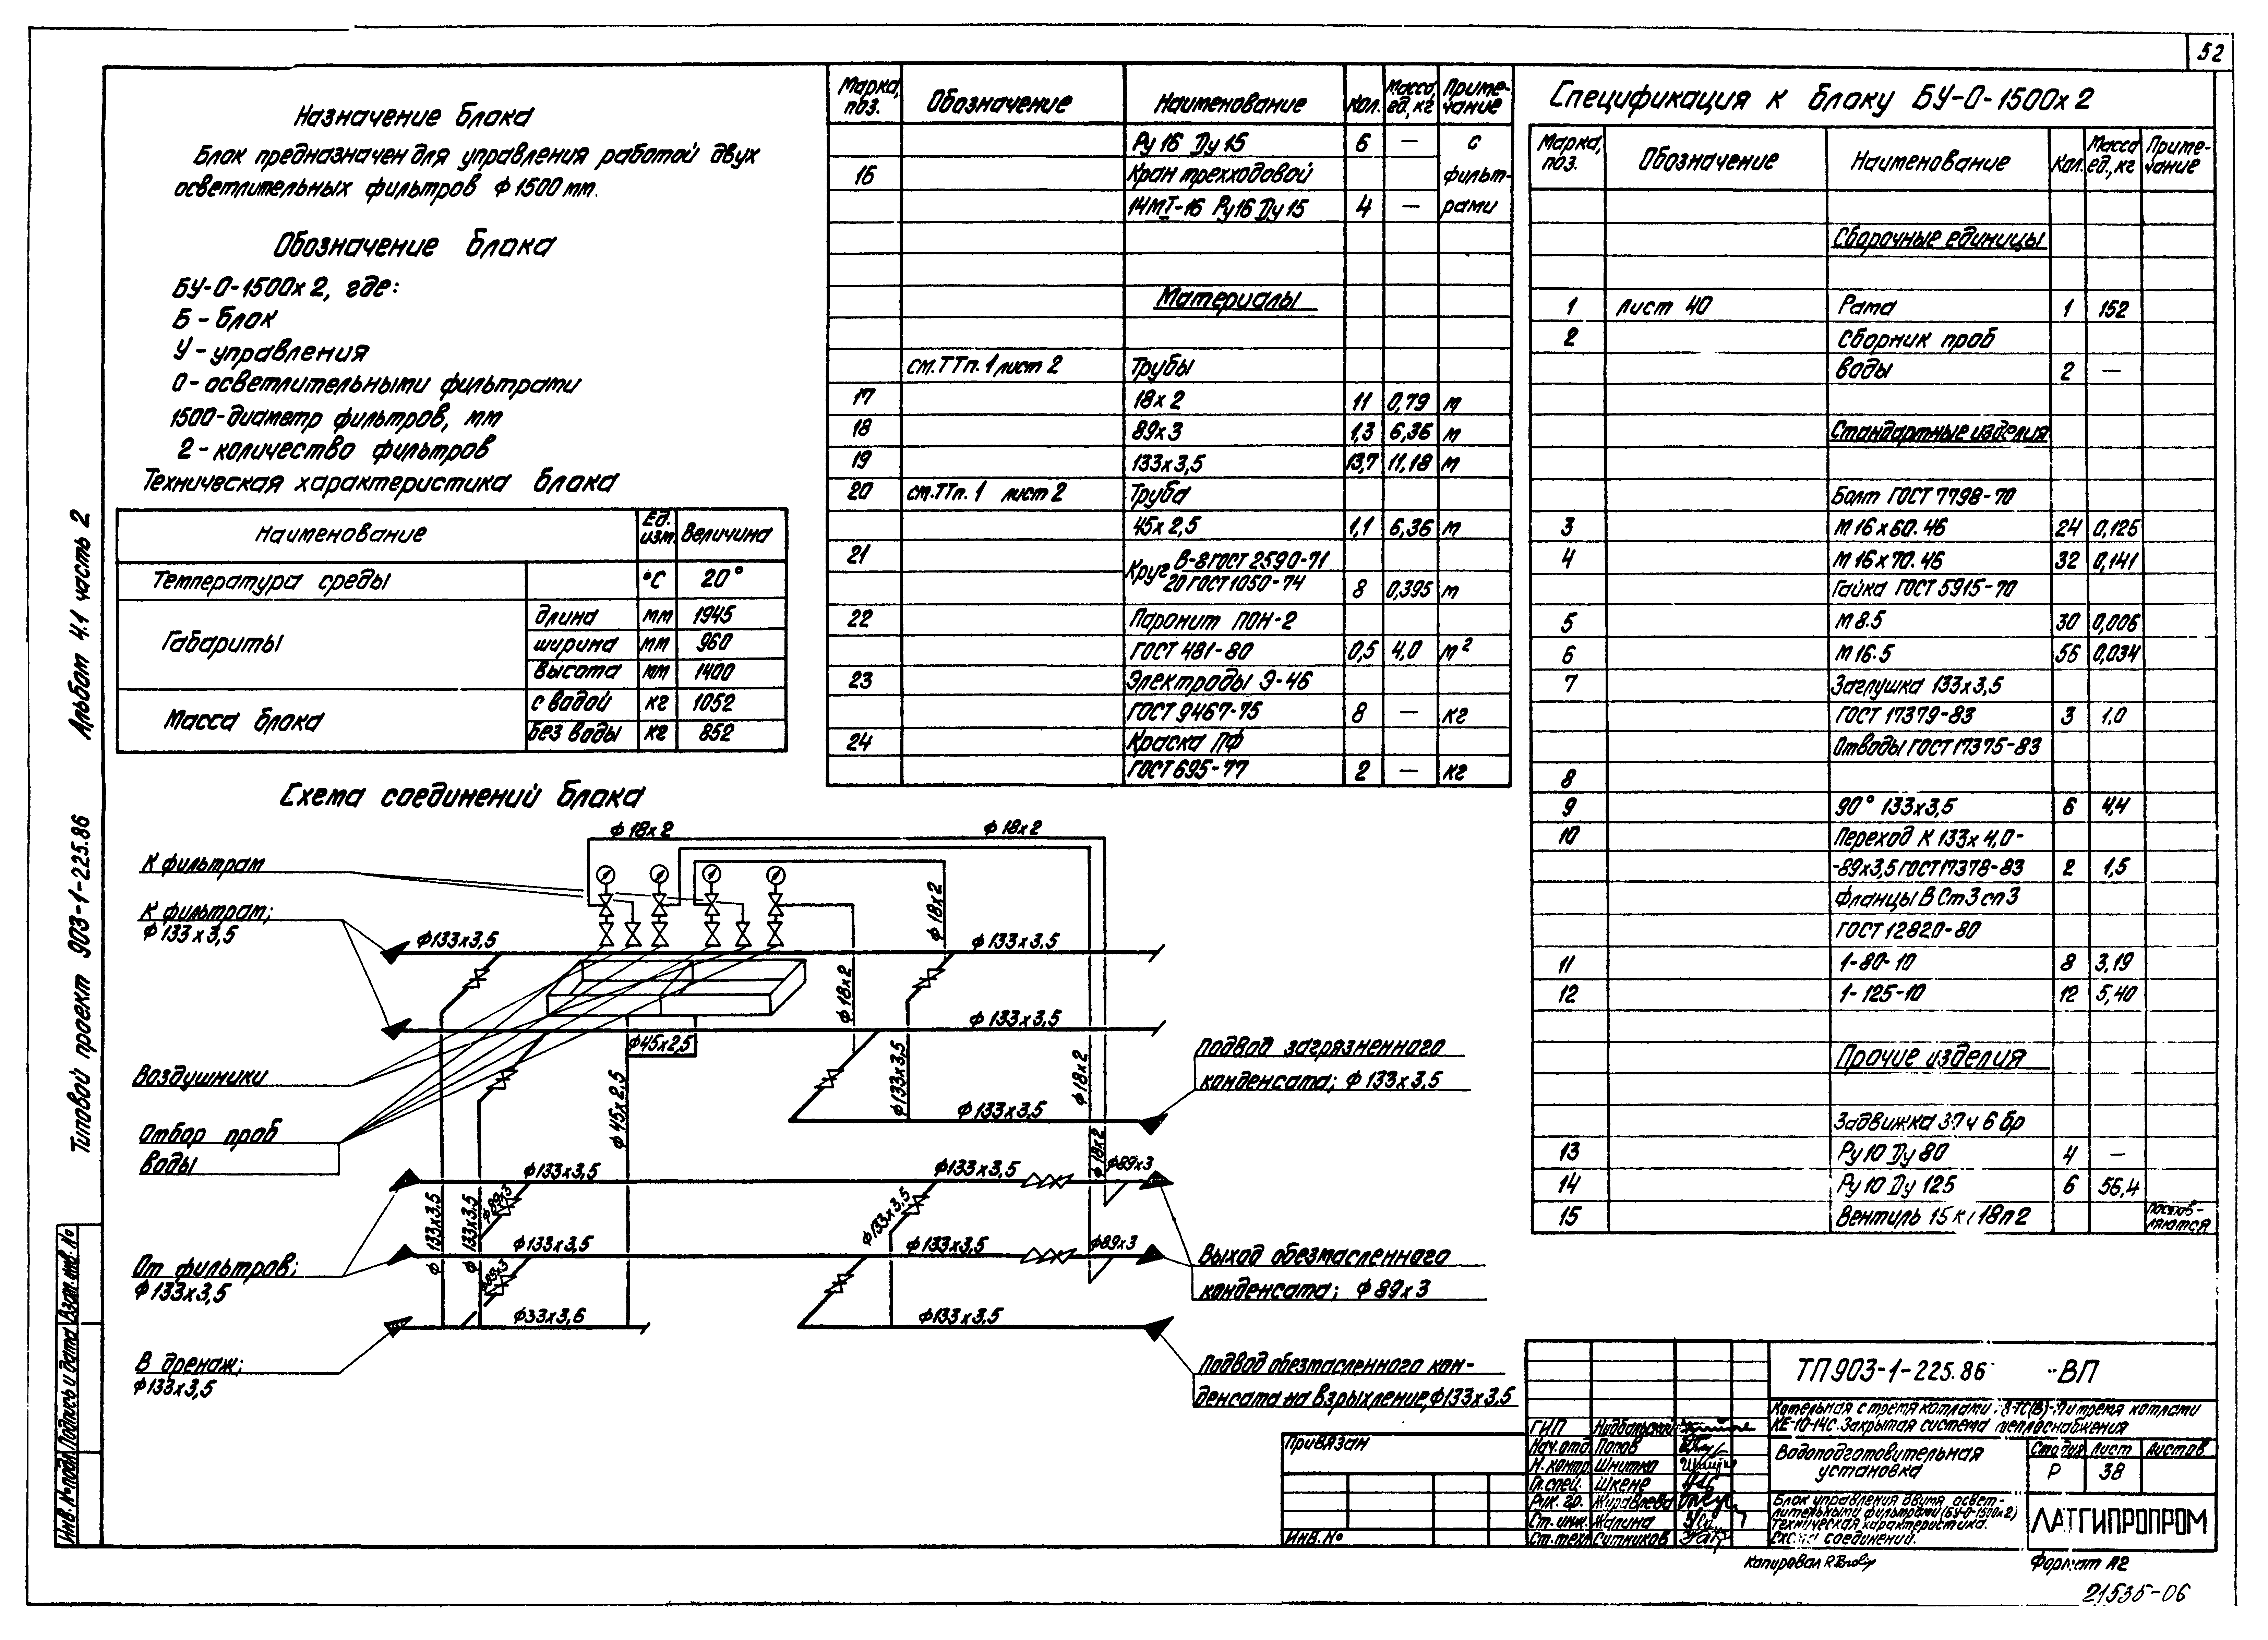 52
Назначение блока
Блок предназначен для управления работой двух
осветлительных фильтров ф 1500 мм.
Обозначение блока
БУ-О-1500х2, где:
Б - блок
У - управления
О - осветлительными фильтрами
1500 - диаметр фильтров, мм
2 - количество фильтров
Техническая характеристика блока
Наименование Ед. изм. Величина
Температура среды °С 20°
Габариты длина мм 1945
ширина мм 960
высота мм 1400
Масса блока с водой кг 1052
без воды кг 852
Схема соединений блока
К фильтрам
К фильтрам;
ф 133х3,5
Воздушники
Отбор проб
воды
От фильтров;
ф 133х3,5
В дренаж;
ф 133х3,5
ф 18х2
ф 18х2
ф 18х2
ф 18х2
ф 18х2
ф 18х2
ф133х3,5
ф133х3,5
ф133х3,5
ф45х2,5
ф45х2,5
ф133х3,5
ф133х3,5
ф133х3,5
ф133х3,5
ф89х3
ф133х3,5
ф133х3,5
ф89х3
ф133х3,5
ф133х3,5
ф133х3,5
ф89х3
ф89х3
ф33х3,6
ф133х3,5
Подвод загрязненного
конденсата; ф 133х3,5
Выход обезмасленного
конденсата; ф 89х3
Подвод обезмасленного кон-
денсата на взрыхление, ф133х3,5
Марка, поз. Обозначение Наименование Кол. Масса ед., кг Приме-чание
Ру 16 Ду 15 6 — с
16 Кран трехходовой фильт-
14МI-16 Ру16 Ду 15 4 — рами
Материалы
см. ТТп. 1 лист 2 Трубы
17 18х2 11 0,79 м
18 89х3 1,3 6,36 м
19 133х3,5 13,7 11,18 м
20 см. ТТп. 1 лист 2 Труба
45х2,5 1,1 6,36 м
21 Круг В-8 ГОСТ 2590-71
20 ГОСТ 1050-74 8 0,395 м
22 Паронит ПОН-2
ГОСТ 481-80 0,5 4,0 м²
23 Электроды Э-46
ГОСТ 9467-75 8 — кг
24 Краска ПФ
ГОСТ 695-77 2 — кг
Спецификация к блоку БУ-О-1500х2
Марка, поз. Обозначение Наименование Кол. Масса ед., кг Приме-чание
Сборочные единицы
1 лист 40 Рама 1 152
2 Сборник проб
воды 2 —
Стандартные изделия
Болт ГОСТ 7798-70
3 М16х60.46 24 0,125
4 М16х70.46 32 0,141
Гайка ГОСТ 5915-70
5 М8.5 30 0,006
6 М16.5 56 0,034
7 Заглушка 133х3,5
ГОСТ 17379-83 3 1,0
Отводы ГОСТ 17375-83
8
9 90° 133х3,5 6 4,4
10 Переход К 133х4,0-
-89х3,5 ГОСТ 17378-83 2 1,5
Фланцы ВСт3сп3
ГОСТ 12820-80
11 1-80-10 8 3,19
12 1-125-10 12 5,40
Прочие изделия
Задвижка 30ч 6 бр
13 Ру10 Ду 80 4 —
14 Ру10 Ду 125 6 56,4
15 Вентиль 15 к 18п2 постав-ляются
Типовой проект 903-1-225.86 Альбом 4.1 часть 2
Инв. № подл. Подпись и дата Взам. инв. №
Привязан
Инв. №
ТП 903-1-225.86 -ВП
Котельная с тремя котлами и тремя котлами
КЕ-10-14С. Закрытая система теплоснабжения
ГИП
Нач. отд. Попов
Н. контр. Шнитко
Гл. спец. Шкене
Рук. гр. Журавлева
Ст. инж. Жалина
Ст. техн. Ситников
Водоподготовительная
установка
Стадия Лист Листов
Р 38
Блок управления двумя освет-
лительными фильтрами (БУ-О-1500х2)
Техническая характеристика.
Схема соединений.
ЛАТГИПРОПРОМ
Копировал
Формат А2
21535-06